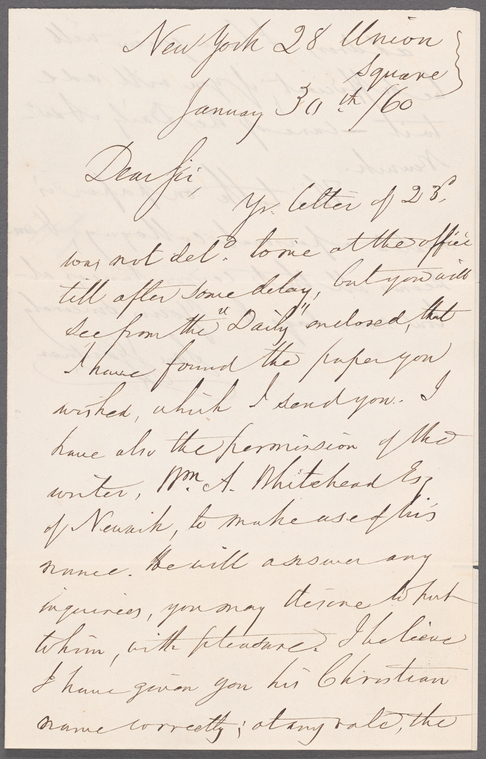 New York 28 Union
Square
January 30th /60
Dear Sir,
Yr. letter of 23d.
was not deld. to me at the office
till after some delay, but you will
see from the "Daily" enclosed, that
I have found the paper you
wished, which I send you. I
have also the permission of the
writer, Wm. A. Whitehead Esq
of Newark, to make use of his
name. He will answer any
inquiries, you may desire to put
to him, with pleasure. I believe
I have given you his Christian
name correctly; at any rate, the